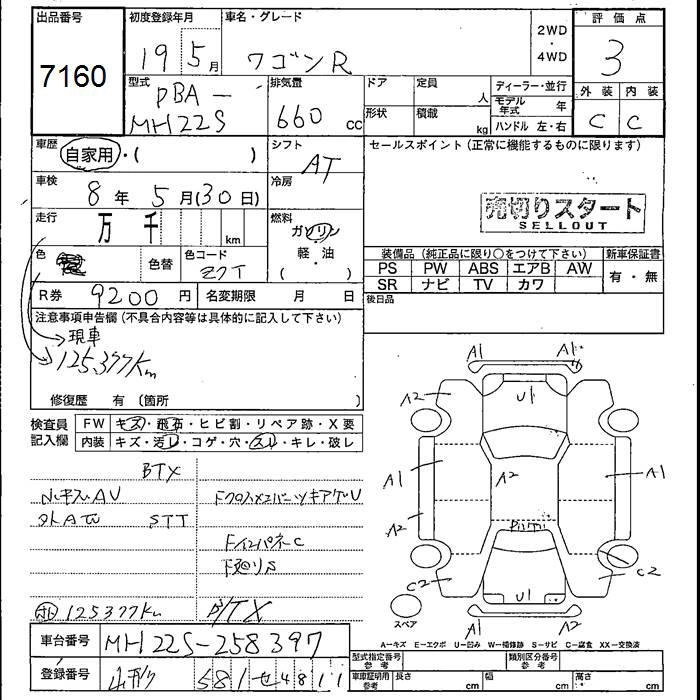 出品番号 初度登録年月 車名・グレード 評価点
7160 19 5月 ワゴンR 2WD・4WD 3
型式 排気量 ドア 定員 人 ディーラー・並行 外装 内装
PBA－ 形状 積載 kg モデル年式 年
MH22S 660 cc ハンドル 左・右 C C
車歴 自家用・( ) シフト AT セールスポイント(正常に機能するものに限ります)
車検 8年 5月(30日) 冷房
売切りスタート
SELLOUT
走行 万 千 km 燃料 ガソリン
軽・油
( )
色 色替 色コード ZJT
装備品(純正品に限り○をつけて下さい) 新車保証書
PS PW ABS エアB AW 有・無
SR ナビ TV カワ
R券 9200円 名変期限 月 日 後日品
注意事項申告欄(不具合内容等は具体的に記入して下さい)
現車
125377Km
修復歴 有 (箇所 )
検査員 FW キズ・飛石・ヒビ割・リペア跡・X要
記入欄 内装 キズ・汚レ・コゲ・穴・スレ・キレ・破レ
A1 A1
A2 U1
A1 A2 A1
A2
C2 U1 C2
A1 A2
スペア
BTX
STT
下廻りS
125377Km
A−キズ E−エクボ U−凹み W−補修跡 S−サビ C−腐食 XX−交換済
車台番号 MH22S-258397
型式指定番号 参考 類別区分番号 参考
登録番号 山形 581 せ 4811
車庫証明用 参考 長さ cm 幅 cm 高さ cm